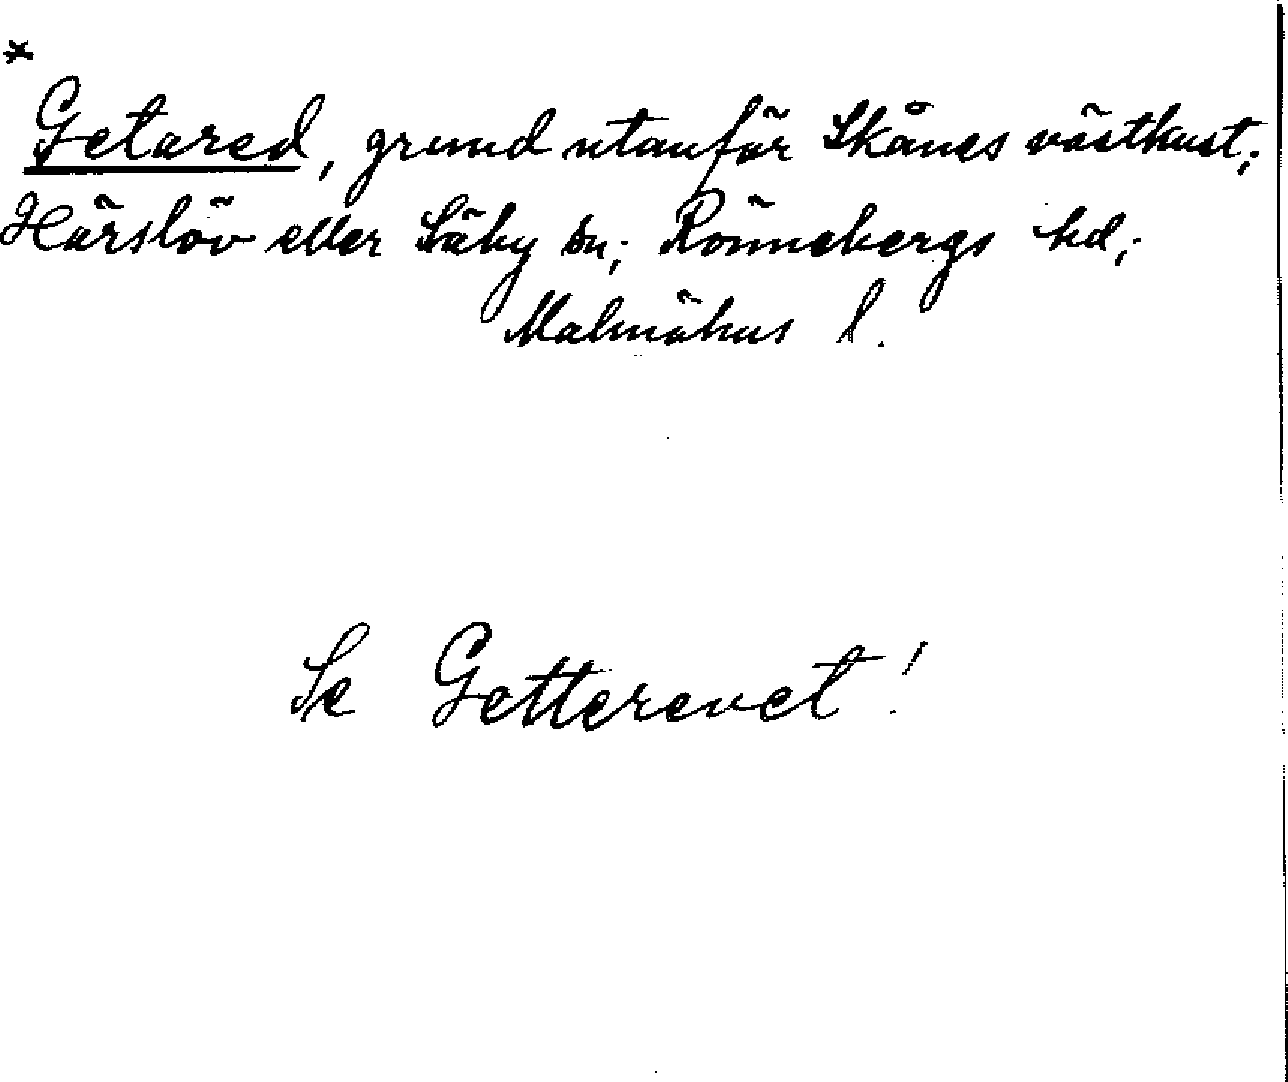 *
Getared, grund utanför Skånes västkust;
Härslöv eller Säby sn; Rönnebergs hd;
Malmöhus l.
Se Getterevet!